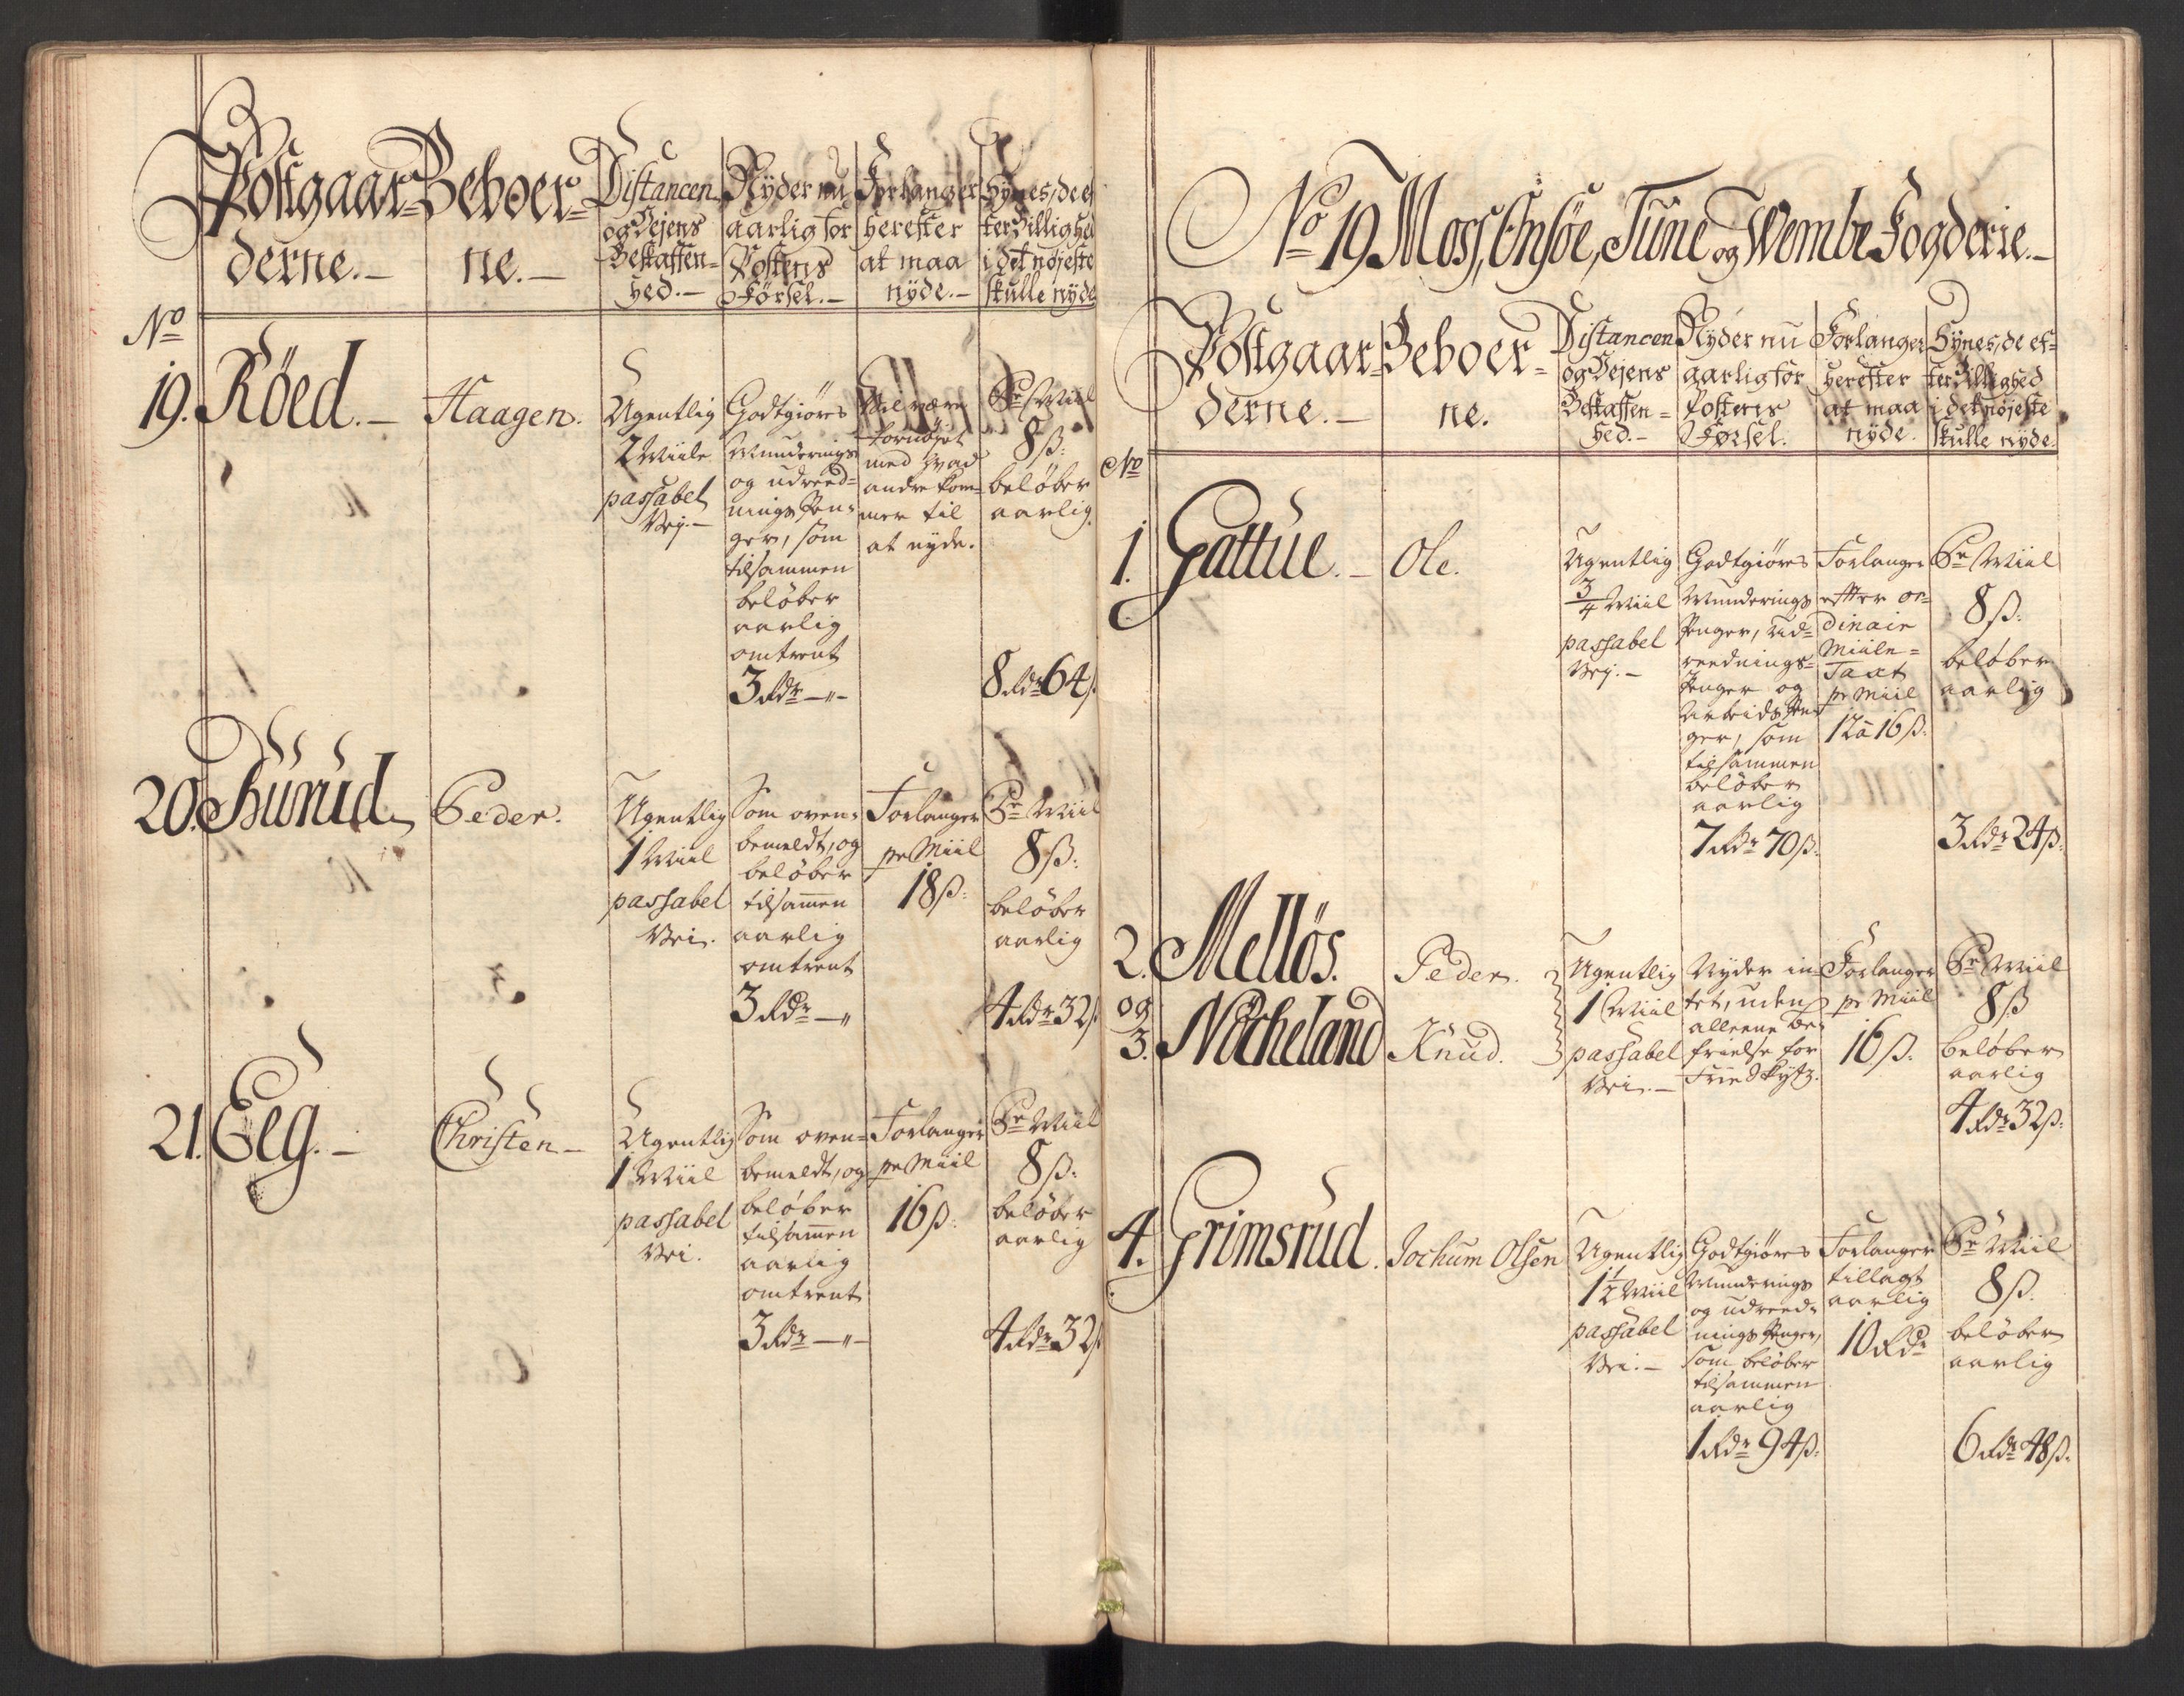 Postgaar=
derne.-
Beboer=
ne.-
Distancen
og Vejens
Beskaffen=
hed.-
Nyder nu
aarlig for
Postens
Førsel.-
Forlanger
herefter
at maa
nyde.-
Synes, de ef
ter Billighed
i det nøjeste
skulle nyde
No
19. Röed.-
Haagen.
Ugentlig
2 Miile
passabel
Vej.-
Godtgiøres
Munderings
og udreed=
nings Pen=
ger, som
tilsammen
beløber
aarlig
omtrent
3 Rdr -"-
Vil være
fornøjet
med hvad
andre kom=
mer til
at nyde.
Pr Miil
8 ß:
beløber
aarlig
8 Rdr 64 ß
20. Burud
Peder.
Ugentlig
1 Miil
passabel
Vei.
Som oven=
bemeldt, og
beløber
tilsam̅en
aarlig
omtrent
3 Rdr -"
Forlanger
pr Miil
18 ß:
Pr Miil
8 ß:
beløber
aarlig
4 Rdr 32 ß
21. Eeg.-
Christen-
Ugentlig
1 Miil
passabel
Vei.
Som oven=
bemeldt, og
beløber
tilsam̅en
aarlig
omtrent
3 Rdr -"-
Forlanger
pr Miil
16 ß:
Pr Miil
8 ß:
beløber
aarlig
4 Rdr 32 ß
No 19 Moss, Onsöe, Tune og Wembe Fogderie.-
Postgaar=
derne.-
Beboer=
ne.
Distancen
og Vejens
Beskaffen=
hed.-
Nyder nu
aarlig for
Postens
Førsel.
Forlanger
herefter
at maa
nyde.
Synes, de ef=
ter Billighed
i det nøjeste
skulle nyde.
No
1. Gattue.-
Ole.
Ugentlig
3/4 Miil
passabel
Vej.-
Godtgiøres
Munderings
Penger, Ud=
reednings=
Penger og
Arbeids Pen=
ger, som
tilsammen
beløber
aarlig
7 Rdr 70 ß:
Forlanger
efter or=
dinair
Miile=
Taxt
pr Miil
12 à 16 ß:
Pr Miil
8 ß:
beløber
aarlig
3 Rdr 24 ß:
2. Melløs.
og
3. Nöcheland
Peder.
Knud.
Ugentlig
1 Miil
passabel
Vei.-
Nyder in=
tet, uden
alleene be=
frielse for
Friedskytz.
Forlanger
pr Miil
16 ß:
Pr Miil
8 ß
beløber
aarlig
4 Rdr 32 ß:
4. Grimsrud.
Jochum Olsen
Ugentlig
1 1/2 Miil
passabel
Vei.-
Godtgiøres
Munderings
og udreed=
nings Penger,
som beløber
tilsammen
aarlig
1 Rdr 94 ß:
Forlanger
tillagt
aarlig
10 Rdr
Pr Miil
8 ß:
beløber
aarlig
6 Rdr 48 ß: